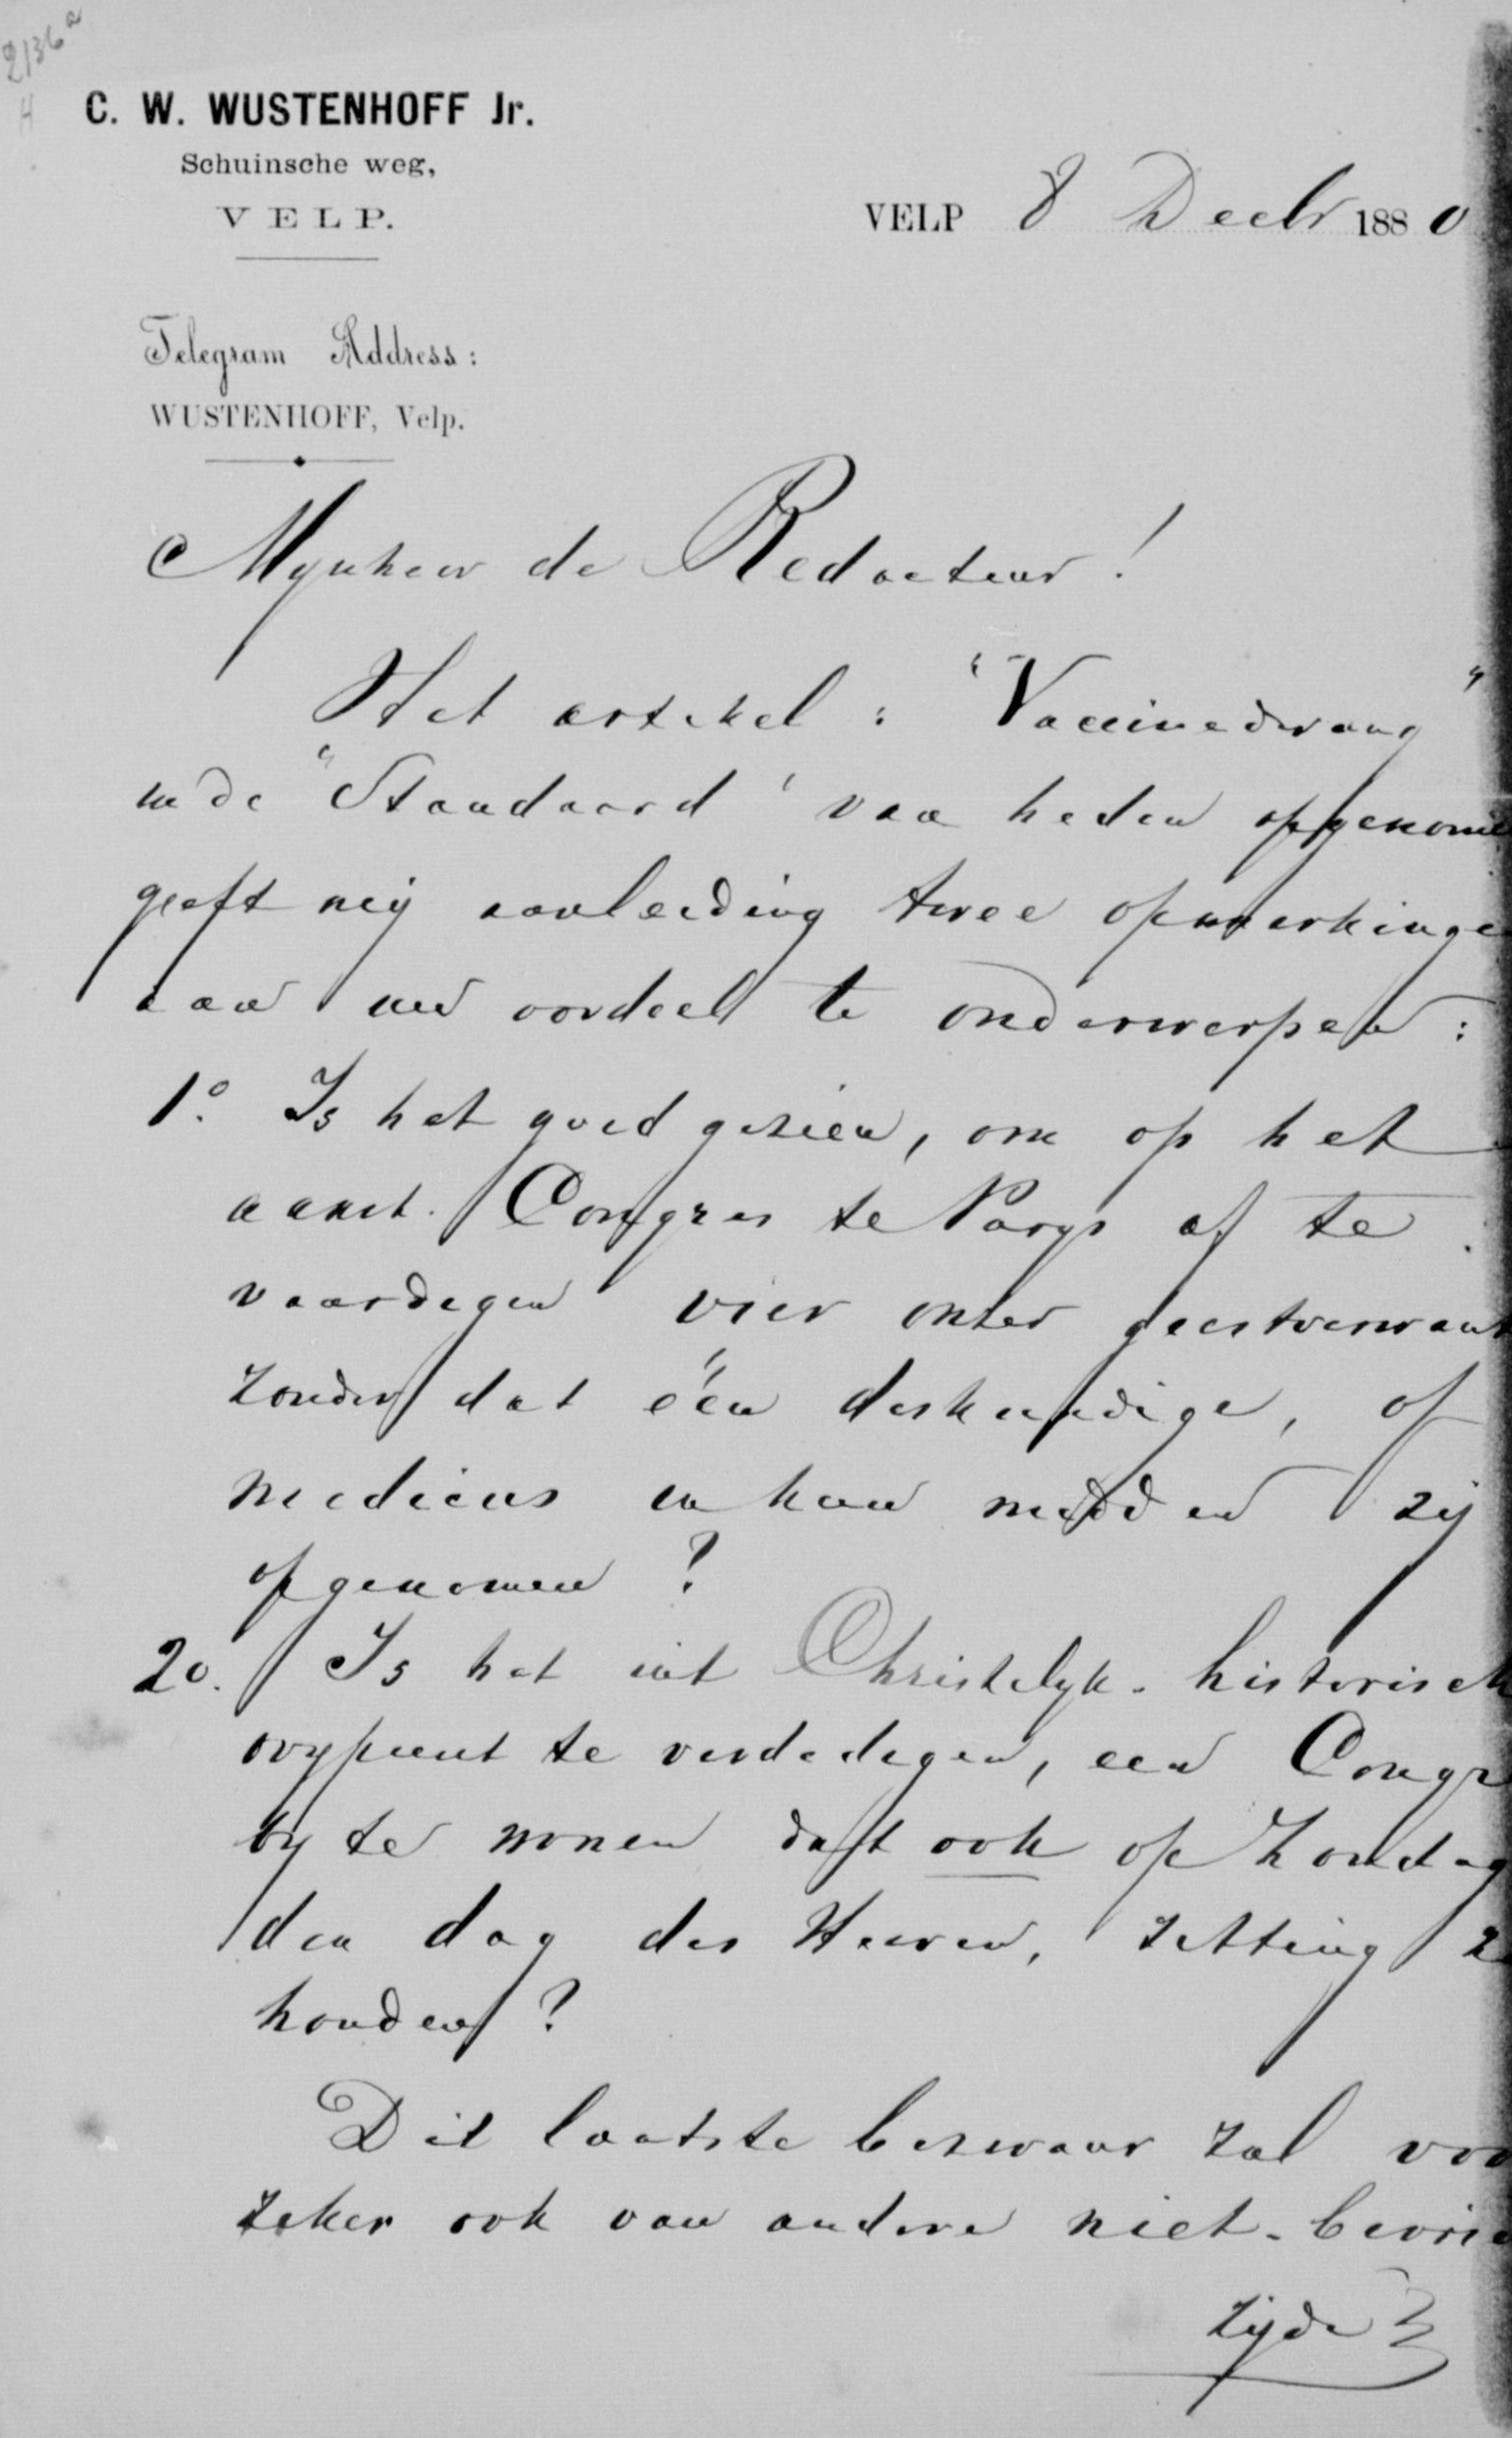 2136a
C. W. WUSTENHOFF Jr.
Schuinsche weg,
VELP.
VELP 8 Decbr 1880
Telegram Address:
WUSTENHOFF, Velp.
Mynheer de Redacteur!
Het artikel: "Vaccinedwang"
in de "Standaard" van heden opgenome
geeft mij aanleiding twee opmerkinge
aan uw oordeel te onderwerpen:
1o. Is het goed gezien, om op het
aanst. Congres te Parys af te
vaardigen vier onzer geestverwant
zonder dat één deskundige, of
medicus in hun midden zij
opgenomen?
2o. Is het uit Christelyk-historisch
oogpunt te verdedigen, een Congr
by te wonen dat ook op Zondag
den dag des Heeren, zitting z
houden?
Dit laatste bezwaar zal voo
zeker ook van andere niet-bevrie
zijde